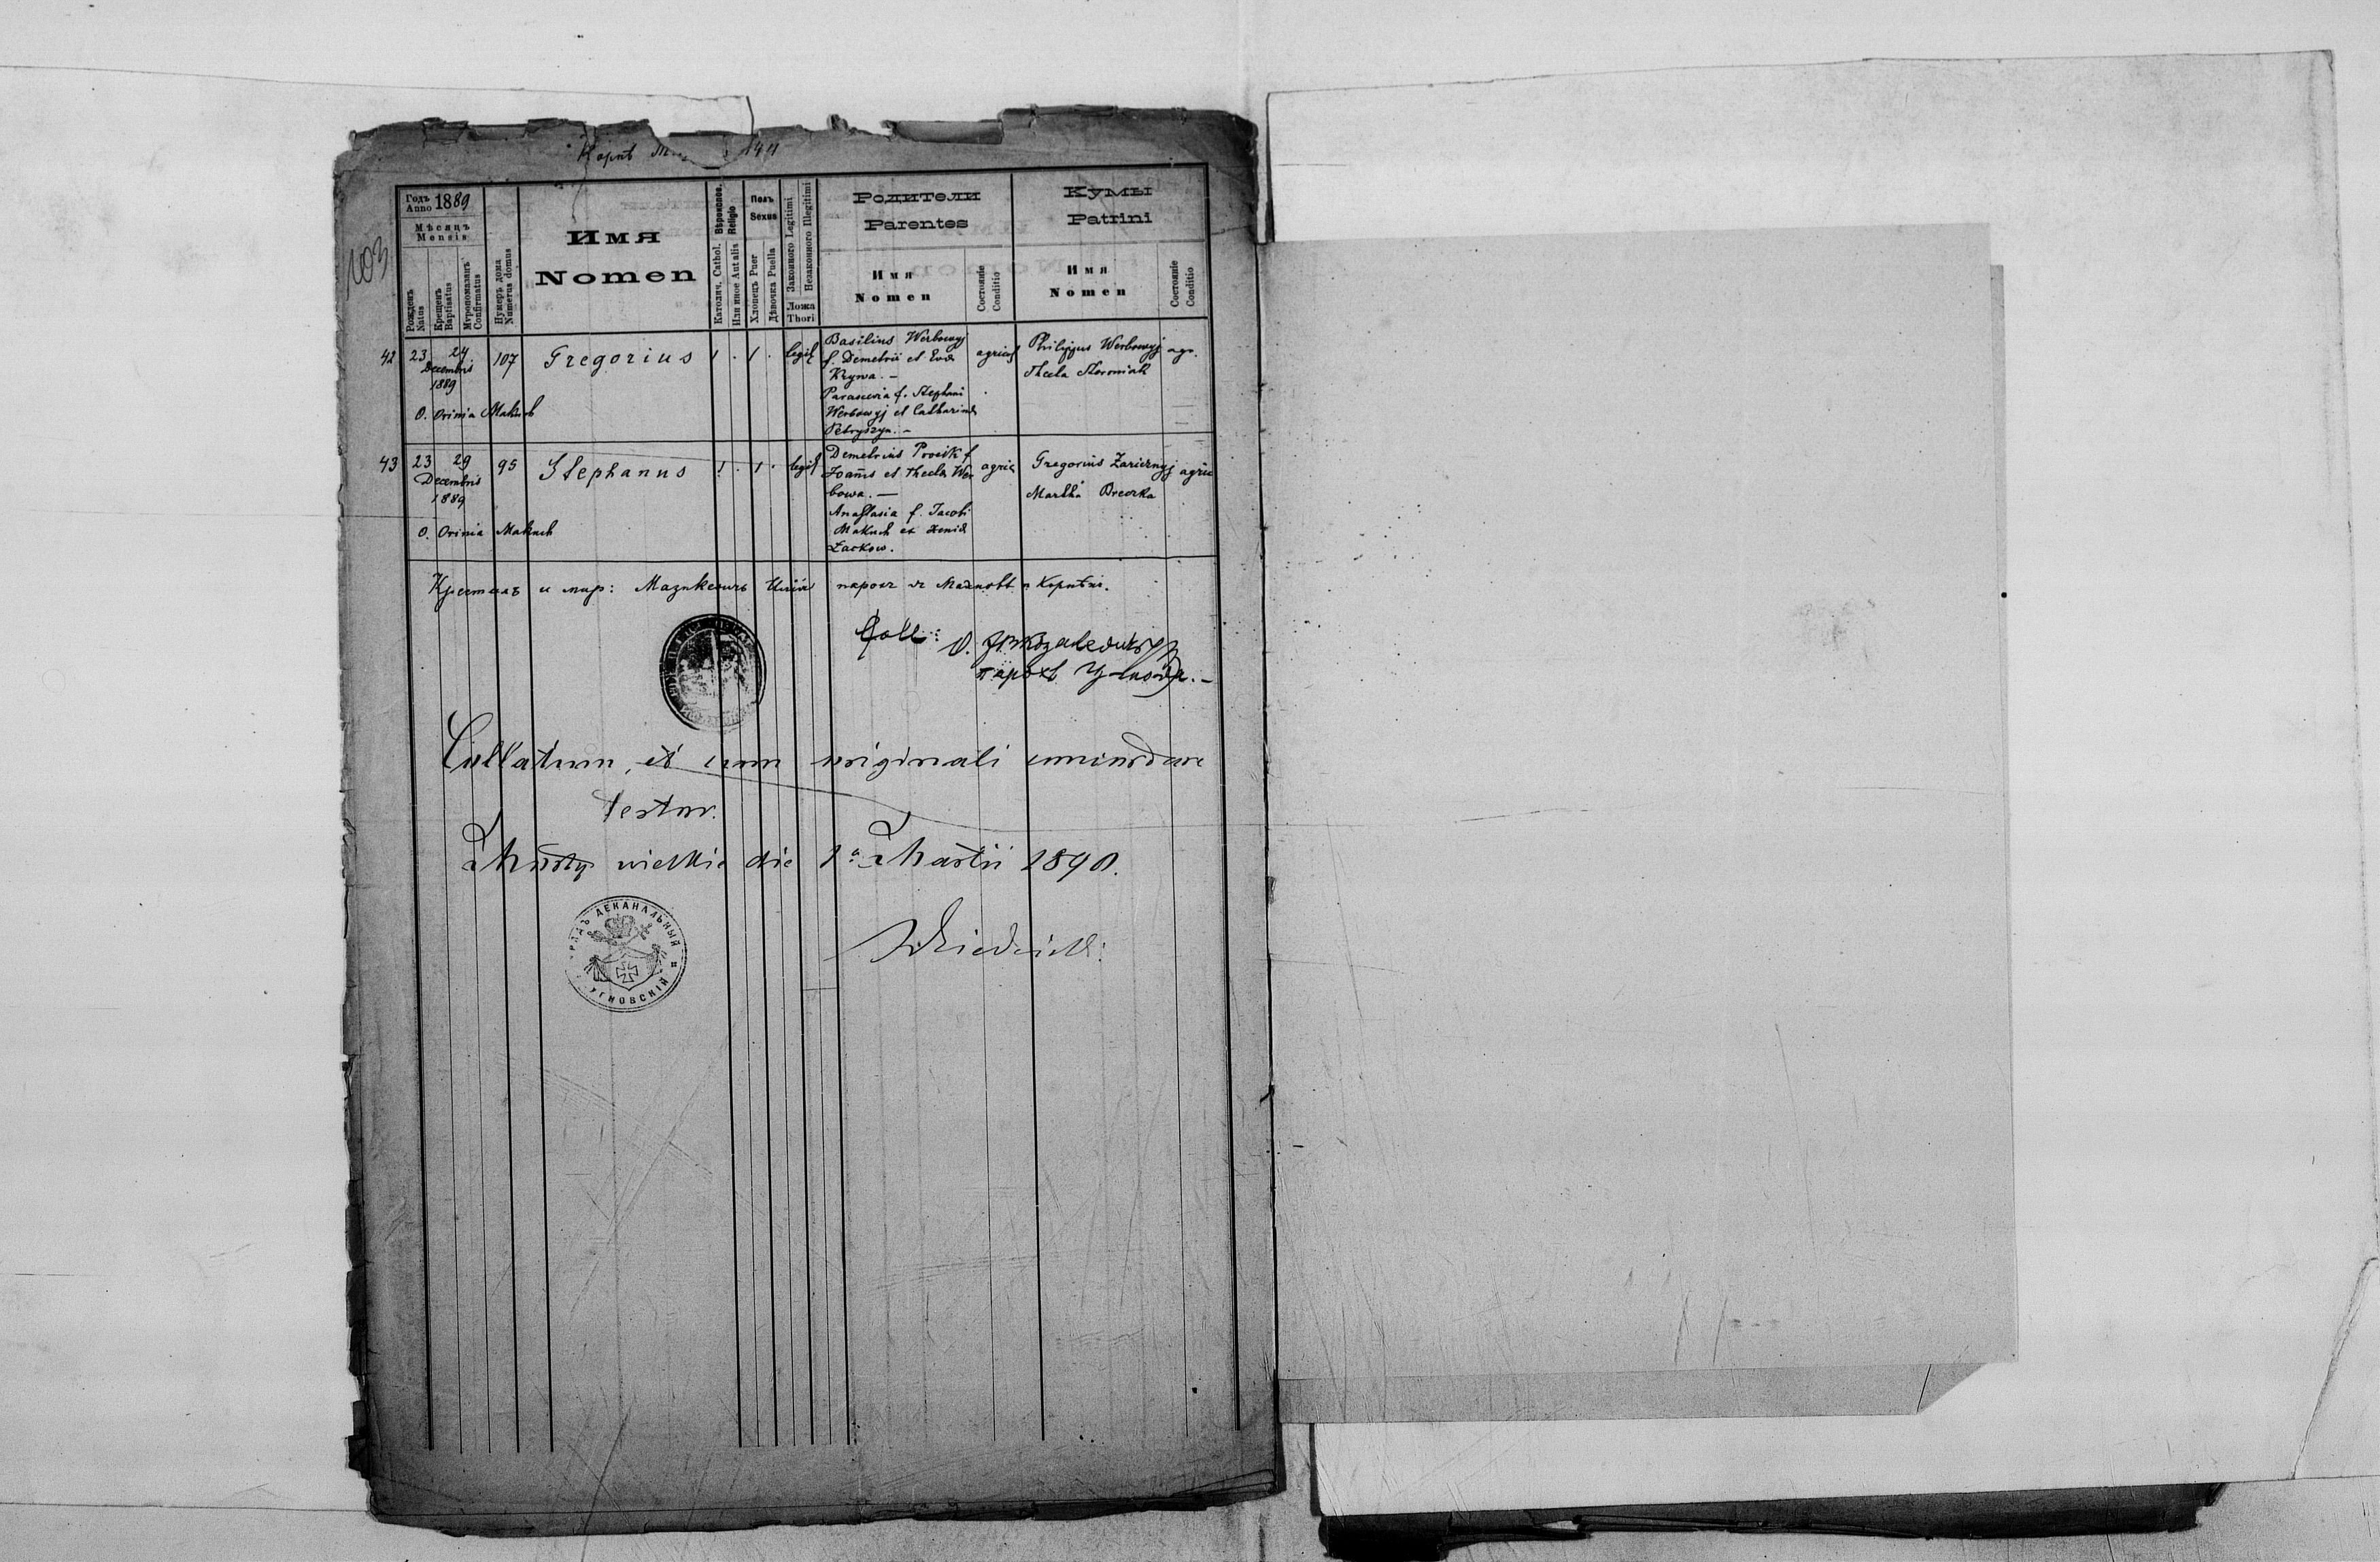 103
Годъ Anno 1889
Мѣсяцъ
Mensis
Рожденъ Natus
Крещенъ Baptisatus
Мѵропомазанъ Confirmatus
Нумеръ дома Numerus domus
Имя
Nomen
Вѣроиспов. Religio
Католич. Cathol.
Или иное Aut alia
Полъ
Sexus
Хлопецъ Puer
Дѣвочка Puella
Законного Legitimi
Незаконного Illegitimi
Ложа
Thori
Родители
Parentes
Имя
Nomen
Состояніе Conditio
Кумы
Patrini
Имя
Nomen
Состояніе Conditio
42 23 24 107 Gregorius 1 . 1 . legit
Decembris
1889
O. Orinia Makuch
Basilius Werbowyj
f. Demetrii et Eva
Krywa. —
Parascevia f. Stephani
Werbowyj et Catharina
Petryszyn. —
agric
Philippus Werbowyj agr.
Thecla
43 23 29 95 Stephanus 1 . 1 . legit
Decembris
1889
O. Orinia Makuch
Demetrius Procik f
Joañis et Thecla Wer
bowa. —
Anastasia f. Jacobi
Makuch et Xenia
Zackow.
agric
Gregorius Zaricznyj agric
Martha
Крестилъ и мир: Мазикевичъ парохъ
Coll:
парохъ
Collatum, et cum originali concordare
testor.
Mosty wielkie die 1ª Martii 1890.
ДЕКАНАЛЬНЫЙ
УГНОВСКІЙ